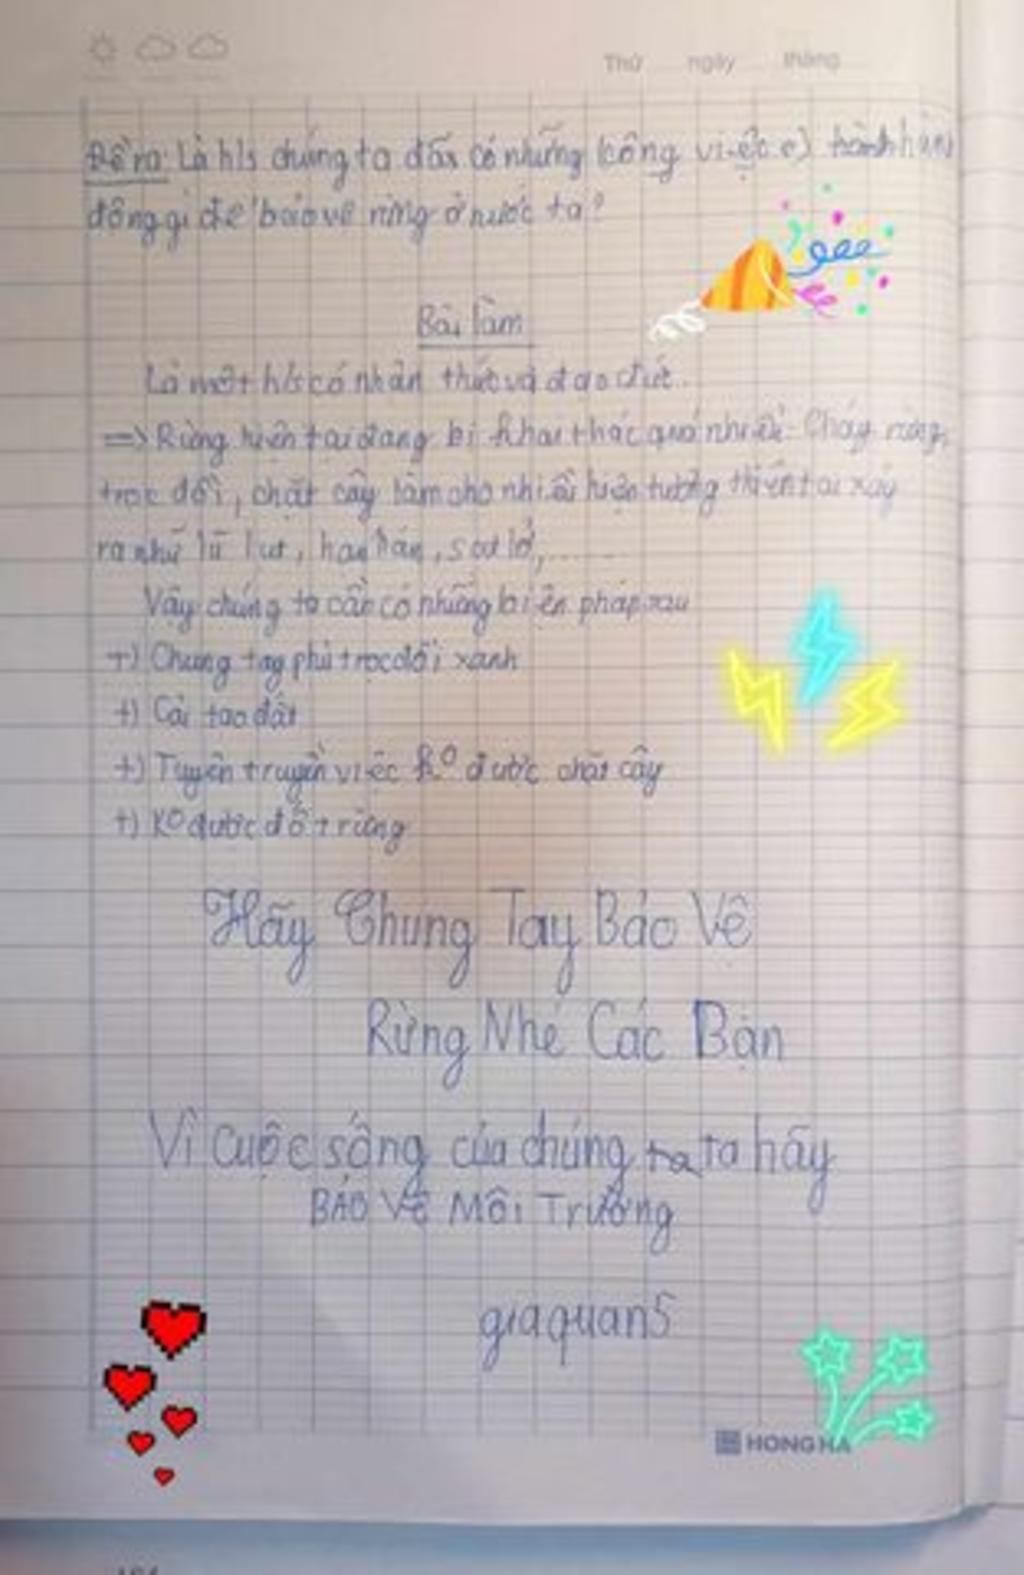 Thứ ngày tháng
Đề ra: Là h/s chúng ta đã có những (công việc) hành
động gì để bảo vệ rừng ở nước ta?
Bài làm
Là một h/s có nhận thức và đạo đức.
=> Rừng hiện tại đang bị khai thác quá nhiều. Cháy rừng,
trọc đồi, chặt cây làm cho nhiều hiện tượng thiên tai xảy
ra như lũ lụt, hạn hán, sạt lở,.......
Vậy chúng ta cần có những biện pháp sau
+) Chung tay phủ trọc đồi xanh
+) Cải tạo đất
+) Tuyên truyền việc k⁰ được chặt cây
+) K⁰ được đốt rừng
Hãy Chung Tay Bảo Vệ
Rừng Nhé Các Bạn
Vì Cuộc sống của chúng ta ta hãy
BẢO Vệ Môi Trường
giaquan5
HONG HA